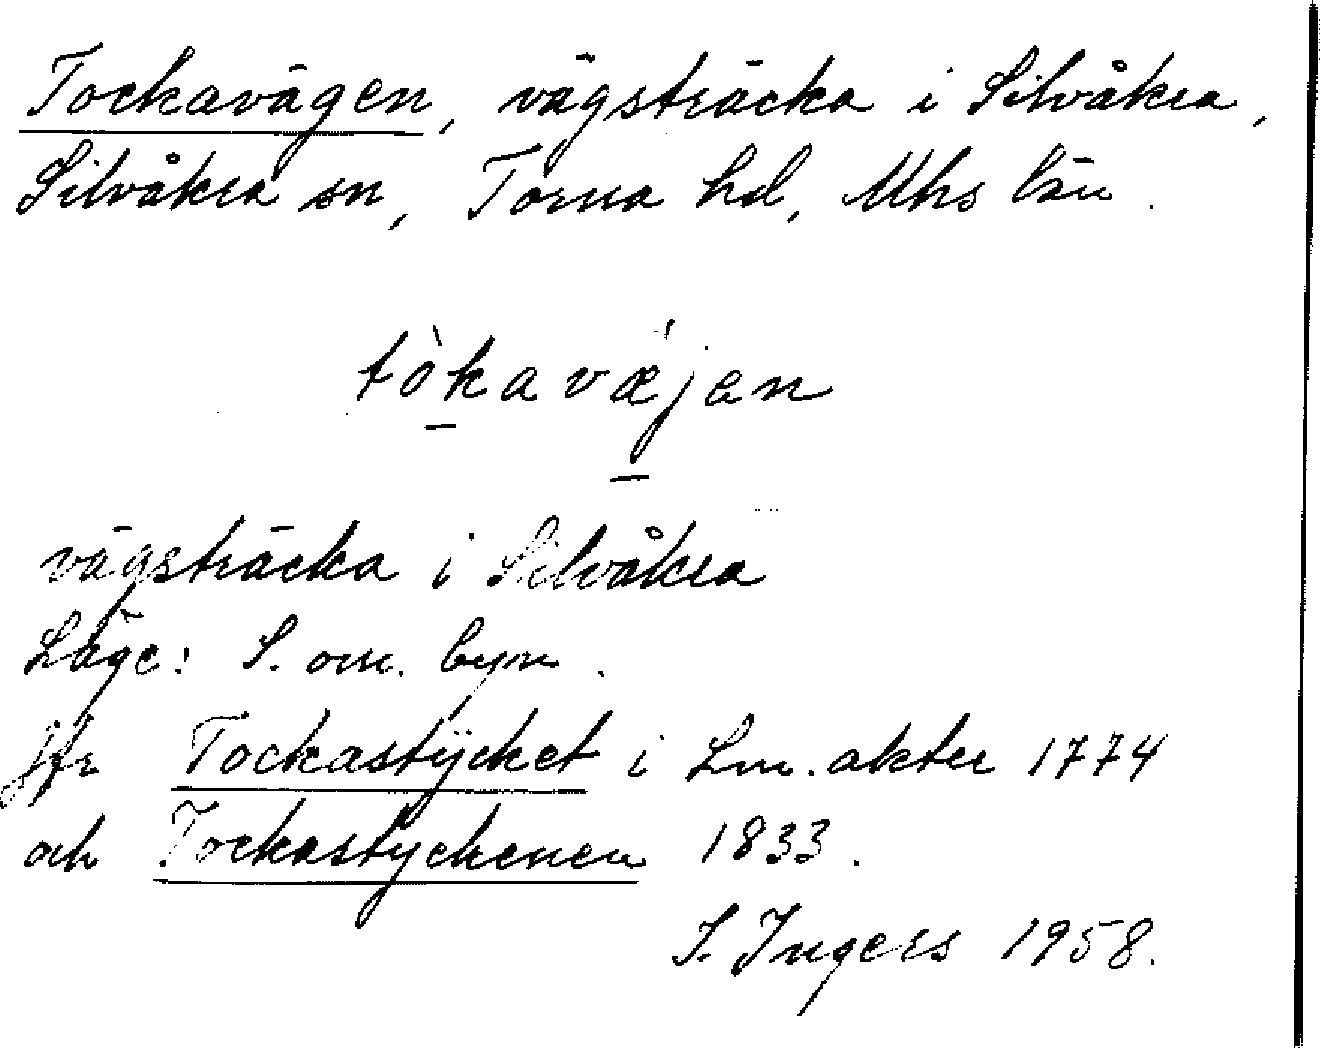 Tockavägen, vägsträcka i Silvåkra,
Silvåkra sn, Torna hd, Mhs län.
tòkavæ'jan
vägsträcka i Silvåkra
Läge: S. om. byn.
jfr Tockastÿcket i Lm. akter 1774
och Tockastyckenen 1833.
I. Ingers 1958.